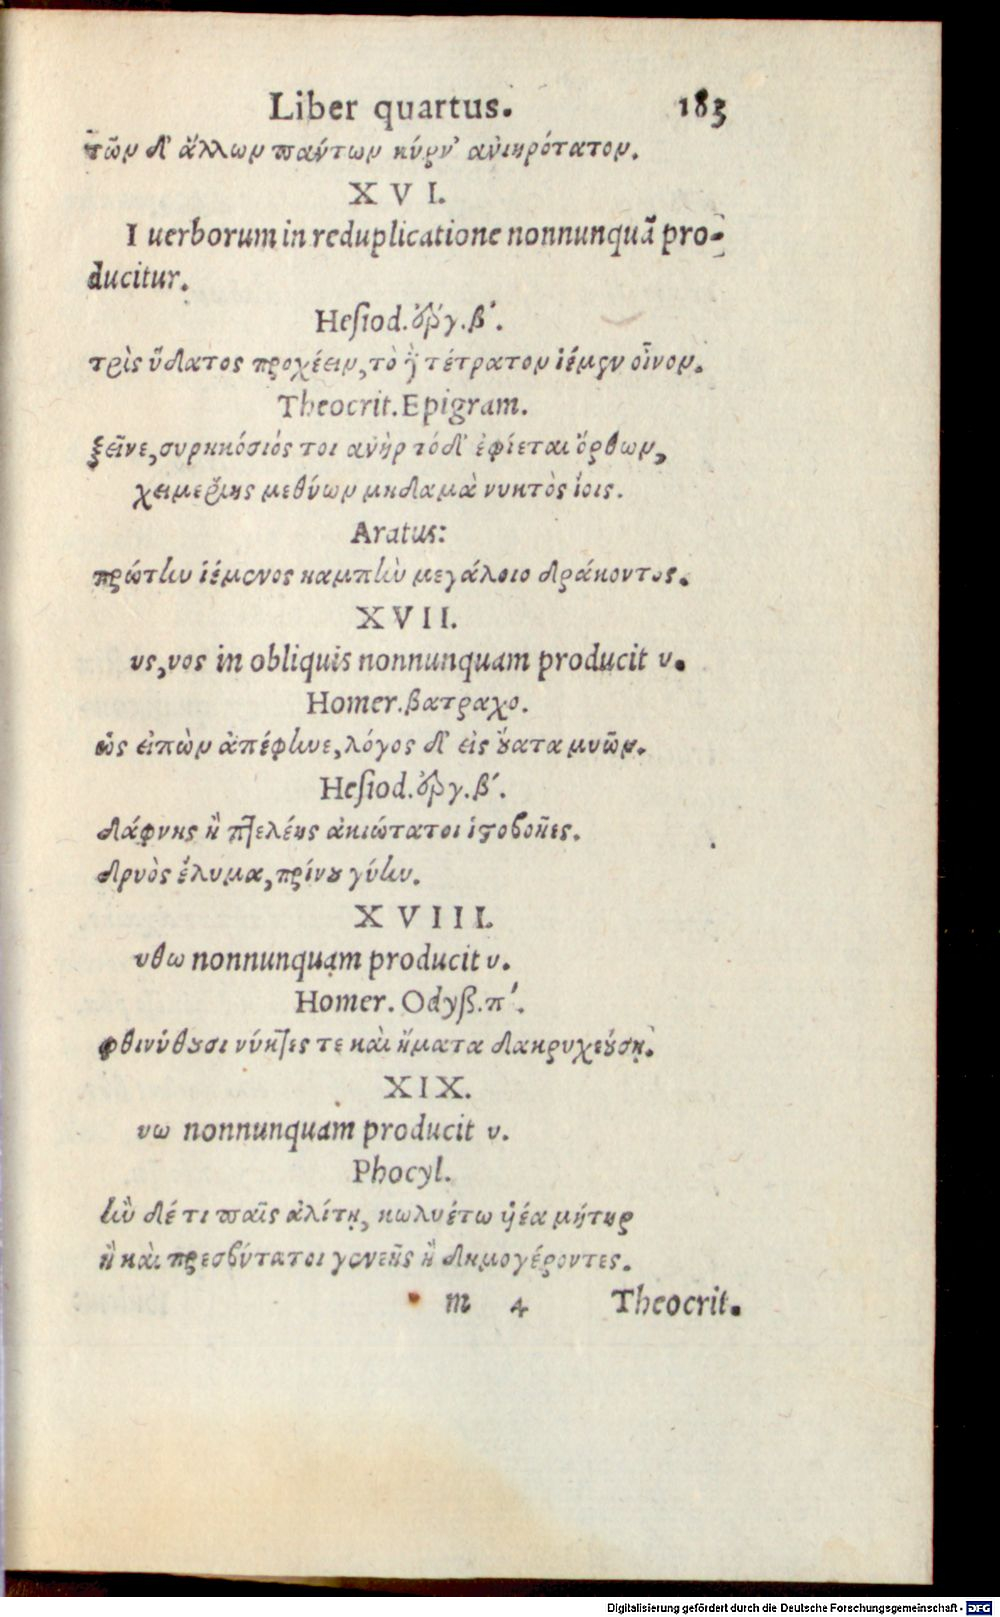 Liber quartus. 183
τῶν δ' ἄλλων πάντων κύρν' ἀνιηρότατον.
X V I.
I uerborum in reduplicatione nonnunquã pro-
ducitur.
Hesiod. ἔργ. β'.
τρὶς ὕδατος προχέειν, τὸ δὲ τέτρατον ἱέμεν οἶνον.
Theocrit. Epigram.
ξεῖνε, συρηκόσιός τοι ἀνὴρ τόδ' ἐφίεται ὄρθων,
χειμερίης μεθύων μηδαμὰ νυκτὸς ἴοις.
Aratus:
πρώτην ἱέμενος καμπὴν μεγάλοιο δράκοντος.
XVII.
υς, υος in obliquis nonnunquam producit υ.
Homer. βατραχο.
ὣς εἰπὼν ἀπέφηνε, λόγος δ' εἰς οὔατα μυῶν.
Hesiod. ἔργ. β'.
δάφνης ἢ πτελέης ἀκιώτατοι ἱστοβοῆες.
δρυὸς ἔλυμα, πρίνου γύην.
X V I I I.
υθω nonnunquam producit υ.
Homer. Odyß. π'.
φθινύθουσι νύκτες τε καὶ ἤματα δακρυχεούσῃ.
XIX.
υω nonnunquam producit υ.
Phocyl.
ἢν δέ τι παῖς ἀλίτῃ, κωλυέτω υἱέα μήτηρ
ἢ καὶ πρεσβύτατοι γενεῆς ἢ δημογέροντες.
m 4 Theocrit.
Digitalisierung gefördert durch die Deutsche Forschungsgemeinschaft - DFG